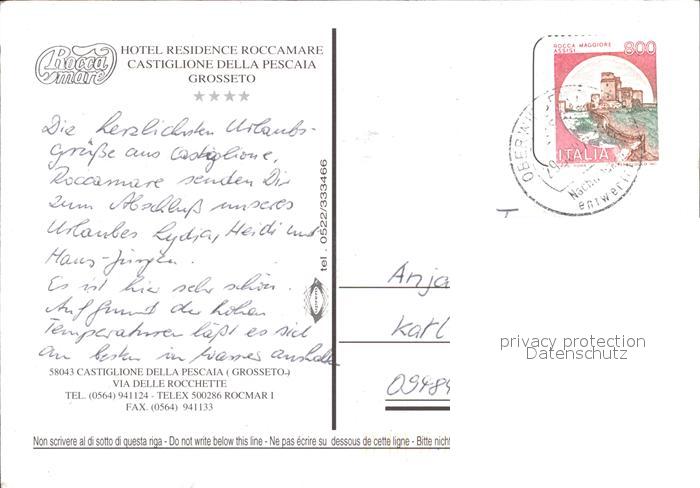 Rocca
mare
HOTEL RESIDENCE ROCCAMARE
CASTIGLIONE DELLA PESCAIA
GROSSETO
ROCCA MAGGIORE
ASSISI
800
ITALIA
entwer
Die herzlichsten Urlaubs-
grüße aus Castiglione,
Roccamare senden Dir
zum Abschluß unseres
Urlaubes Lydia, Heidi und
Hans-Jürgen.
Es ist hier sehr schön.
Aufgrund der hohen
Temperaturen läßt es sich
am besten im Wasser aushalten
tel. 0522/333466
Anja
Karl
09484
privacy protection
Datenschutz
58043 CASTIGLIONE DELLA PESCAIA ( GROSSETO-)
VIA DELLE ROCCHETTE
TEL. (0564) 941124 - TELEX 500286 ROCMAR I
FAX. (0564) 941133
Non scrivere al di sotto di questa riga - Do not write below this line - Ne pas écrire su dessous de cette ligne - Bitte nicht